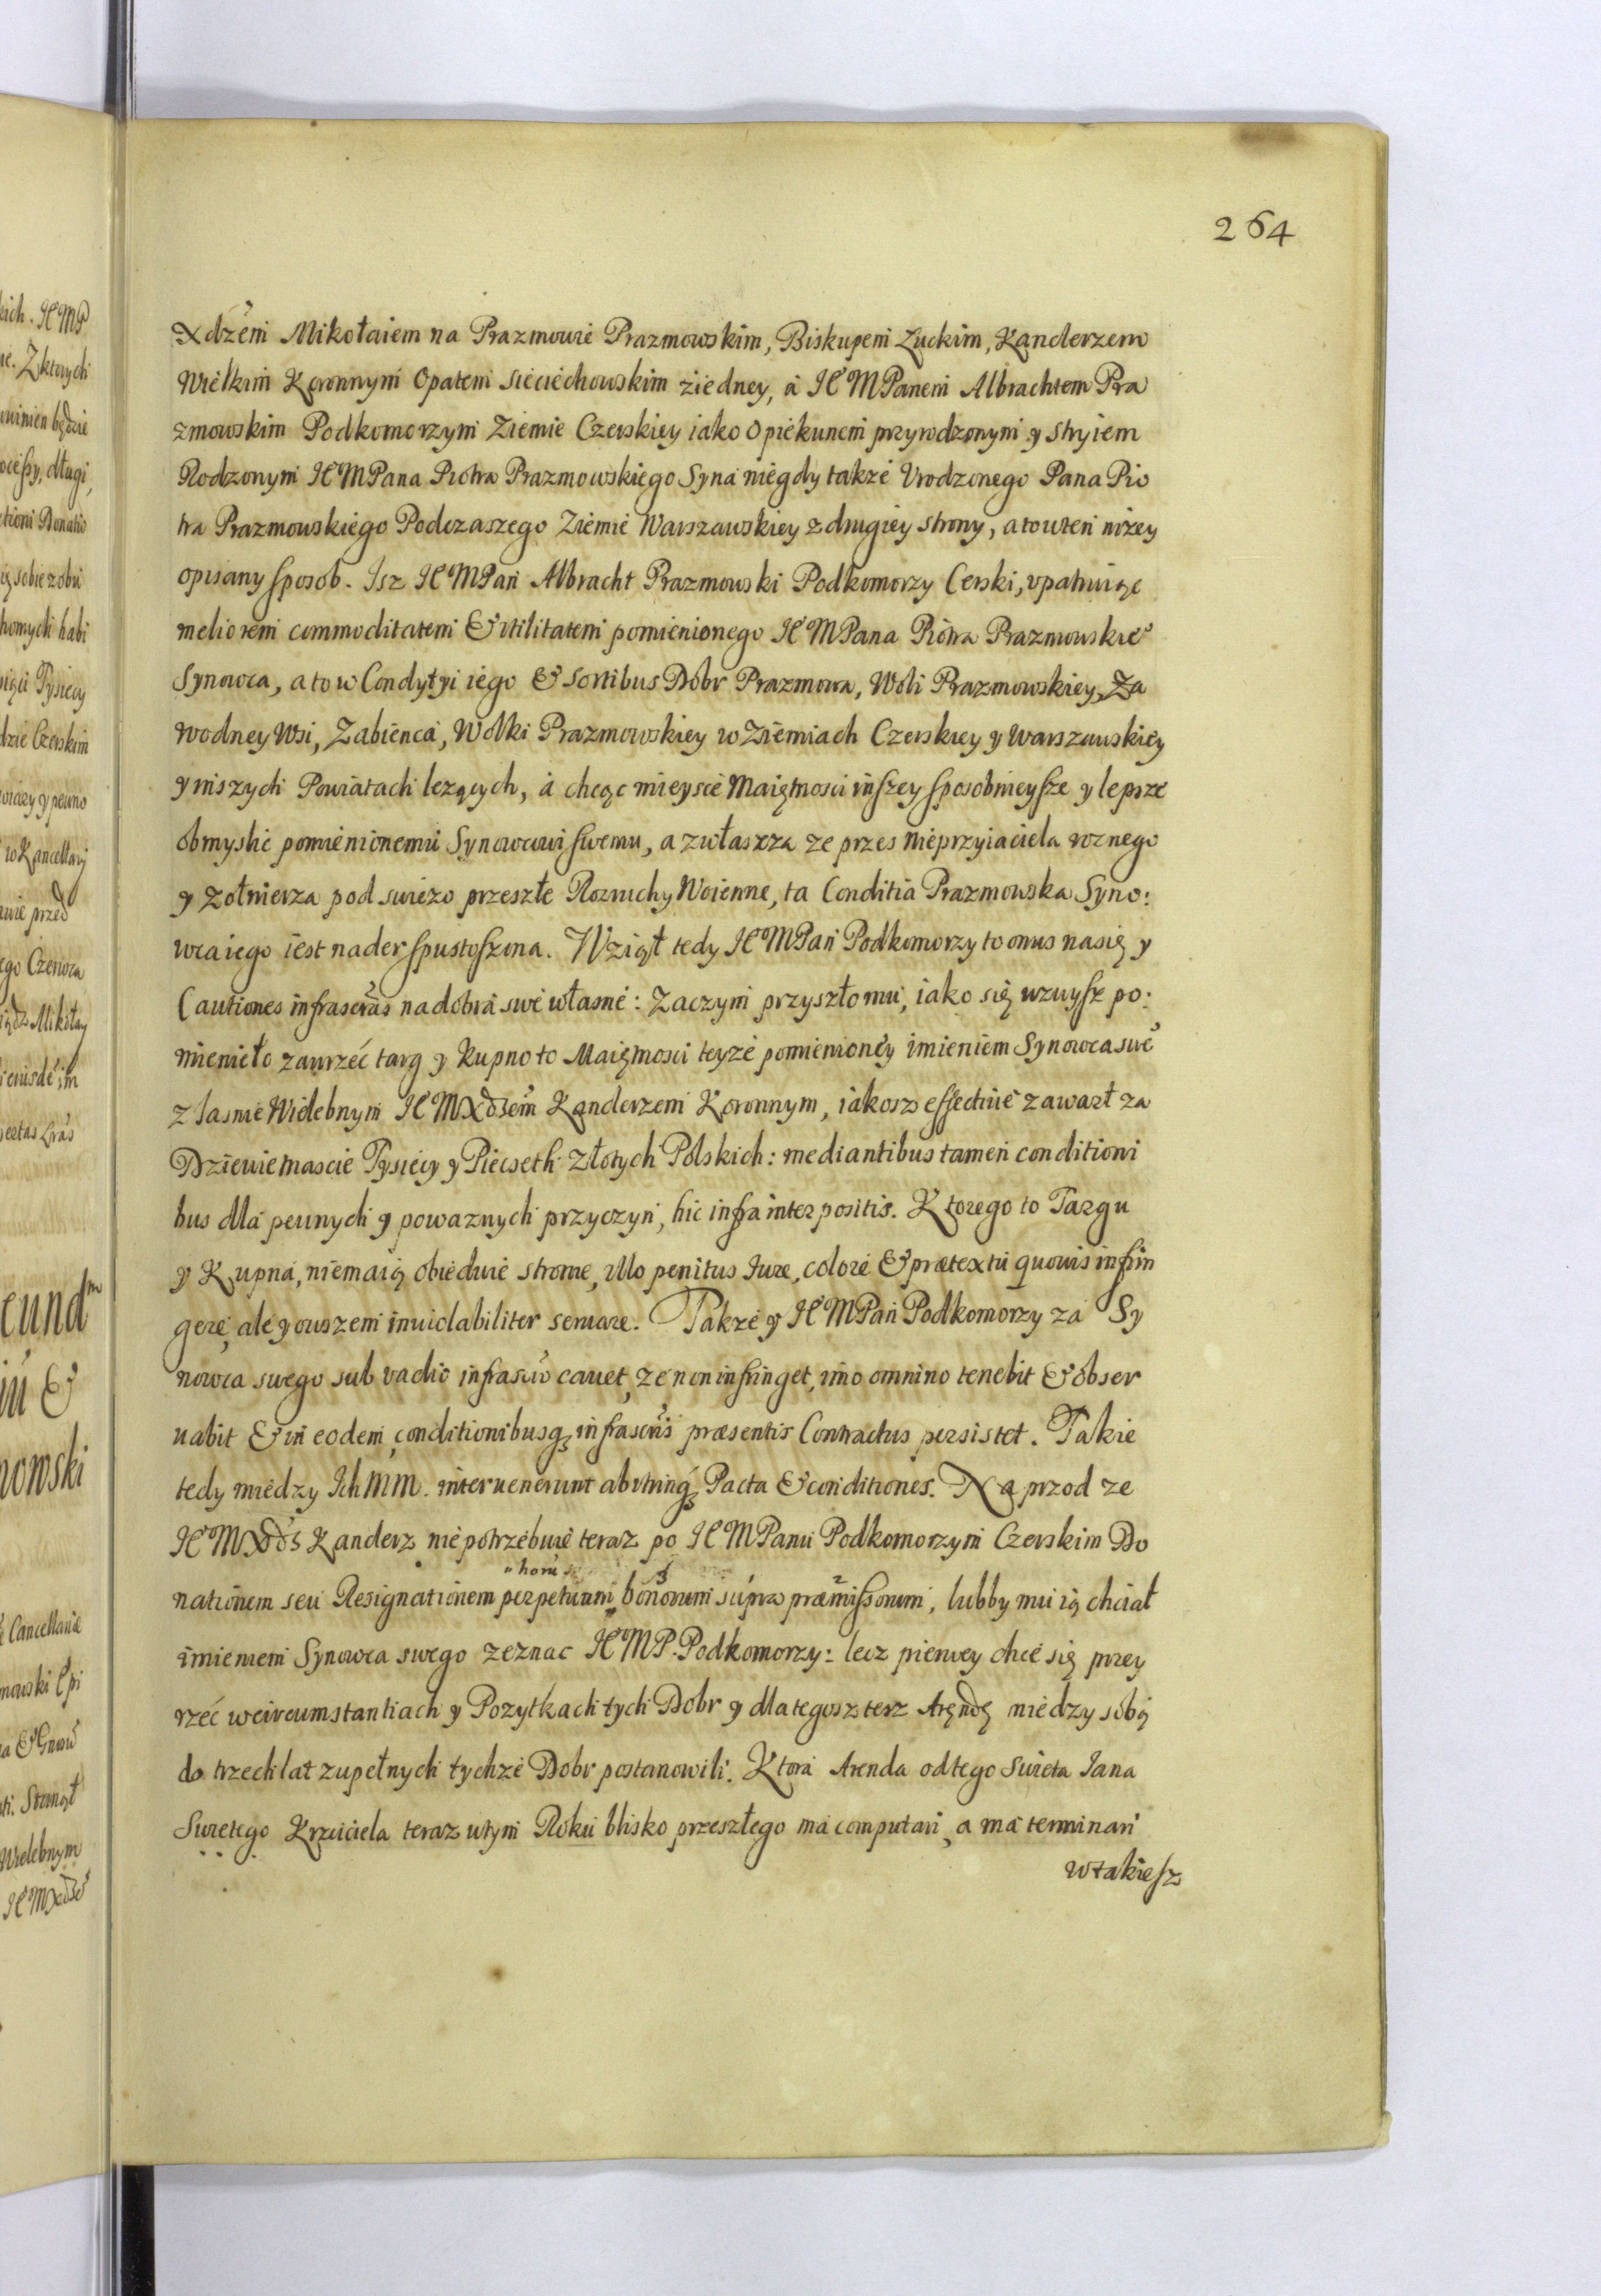 264
Xdzem Mikołaiem na Prazmowie Prazmowskim, Biskupem Łuckim, Kanclerzem
Wielkim Koronnym Opatem Sieciechowskim ziedney, a JE͞MPanem Albrachtem Pra
zmowskim Podkomorzym Ziemie Czerskiey iako Opiekunem przyrodzonym y stryiem
Rodzonym JE͞MPana Piotra Prazmowskiego Syna niegdy takze Vrodzonego Pana Pio
tra Prazmowskiego Podczaszego Ziemie Warszawskiey zdrugiey strony, a towten nizey
opisany sposob. Isz JE͞MPan Albracht Prazmowski Podkomorzy Cerski, vpatruiąc
meliorem commoditatem & vtilitatem pomienionego JE͞MPana Piotra Prazmowskie͞
Synowca, a to w Condytyi iego & sortibus Dobr Prazmowa, Woli Prazmowskiey, Za
wodney Wsi, Zabienca, Wolki Prazmowskiey w Ziemiach Czerskiey y Warszawskiey
y inszych Powiatach lezących, a chcąc mieysce Maiętnosci inszey sposobnieysze y lepsze
obmyslic pomienionemu Synowcowi swemu, a zwłaszcza ze przes nieprzyiaciela roznego
y zołnierza pod swiezo przeszłe Rozruchy Woienne, ta Conditia Prazmowska Syno:
wca iego iest nader spustoszona. Wziął tedy JE͞MPan Podkomorzy to onus nasię y
Cautiones infrascr͞as na dobra swe własne: Zaczym przyszło mu, iako się wzwysz po:
mieniło zawrzeć targ y kupno to Maiętnosci teyze pomienioney imieniem Synowca swe͞
z Iasnie Wielebnym JE͞MXdzem Kanclerzem Koronnym, iakosz effective zawarł za
Dziewietnascie Tysiecy y Piecseth złotych Polskich: mediantibus tamen conditioni
bus dla pewnych y powaznych przyczyn, hic infra interpositis. Ktorego to Targu
y Kupna, niemaią obiedwie stronie, vllo penitus Iure, colore & prætextu quovis infrin
gere, ale y owszem inviolabiliter servare. Takze y JE͞MPan Podkomorzy za Sy
nowca swego sub vadio infrascr͞o cavet, ze non infringet, imo omnino tenebit & obser
vabit & in eodem, conditionibusq infrascr͞is præsentis Contractus persistet. Takie
tedy miedzy Ich mm. intervenerunt abvtrinq, Pacta & conditiones. Na przod ze
JE͞MXdz Kanclerz nie potrzebuie teraz po JE͞MPanu Podkomorzym Czerskim Do
nationem seu Resignationem perpetuam, horu͞ bonorum supra præmissorum, lubby mu ią chciał
imieniem Synowca swego zeznac JE͞MP. Podkomorzy: lecz pierwey chce się przey
rzeć w circumstantiach y Pozytkach tych Dobr y dla tegosz tesz Arędę miedzy sobą
do trzech lat zupełnych tychze Dobr postanowili. Ktora Arenda od tego Swieta Iana
Swietego Krzciciela teraz wtym Roku blisko przeszłego ma computari, a ma terminari
wtakiesz